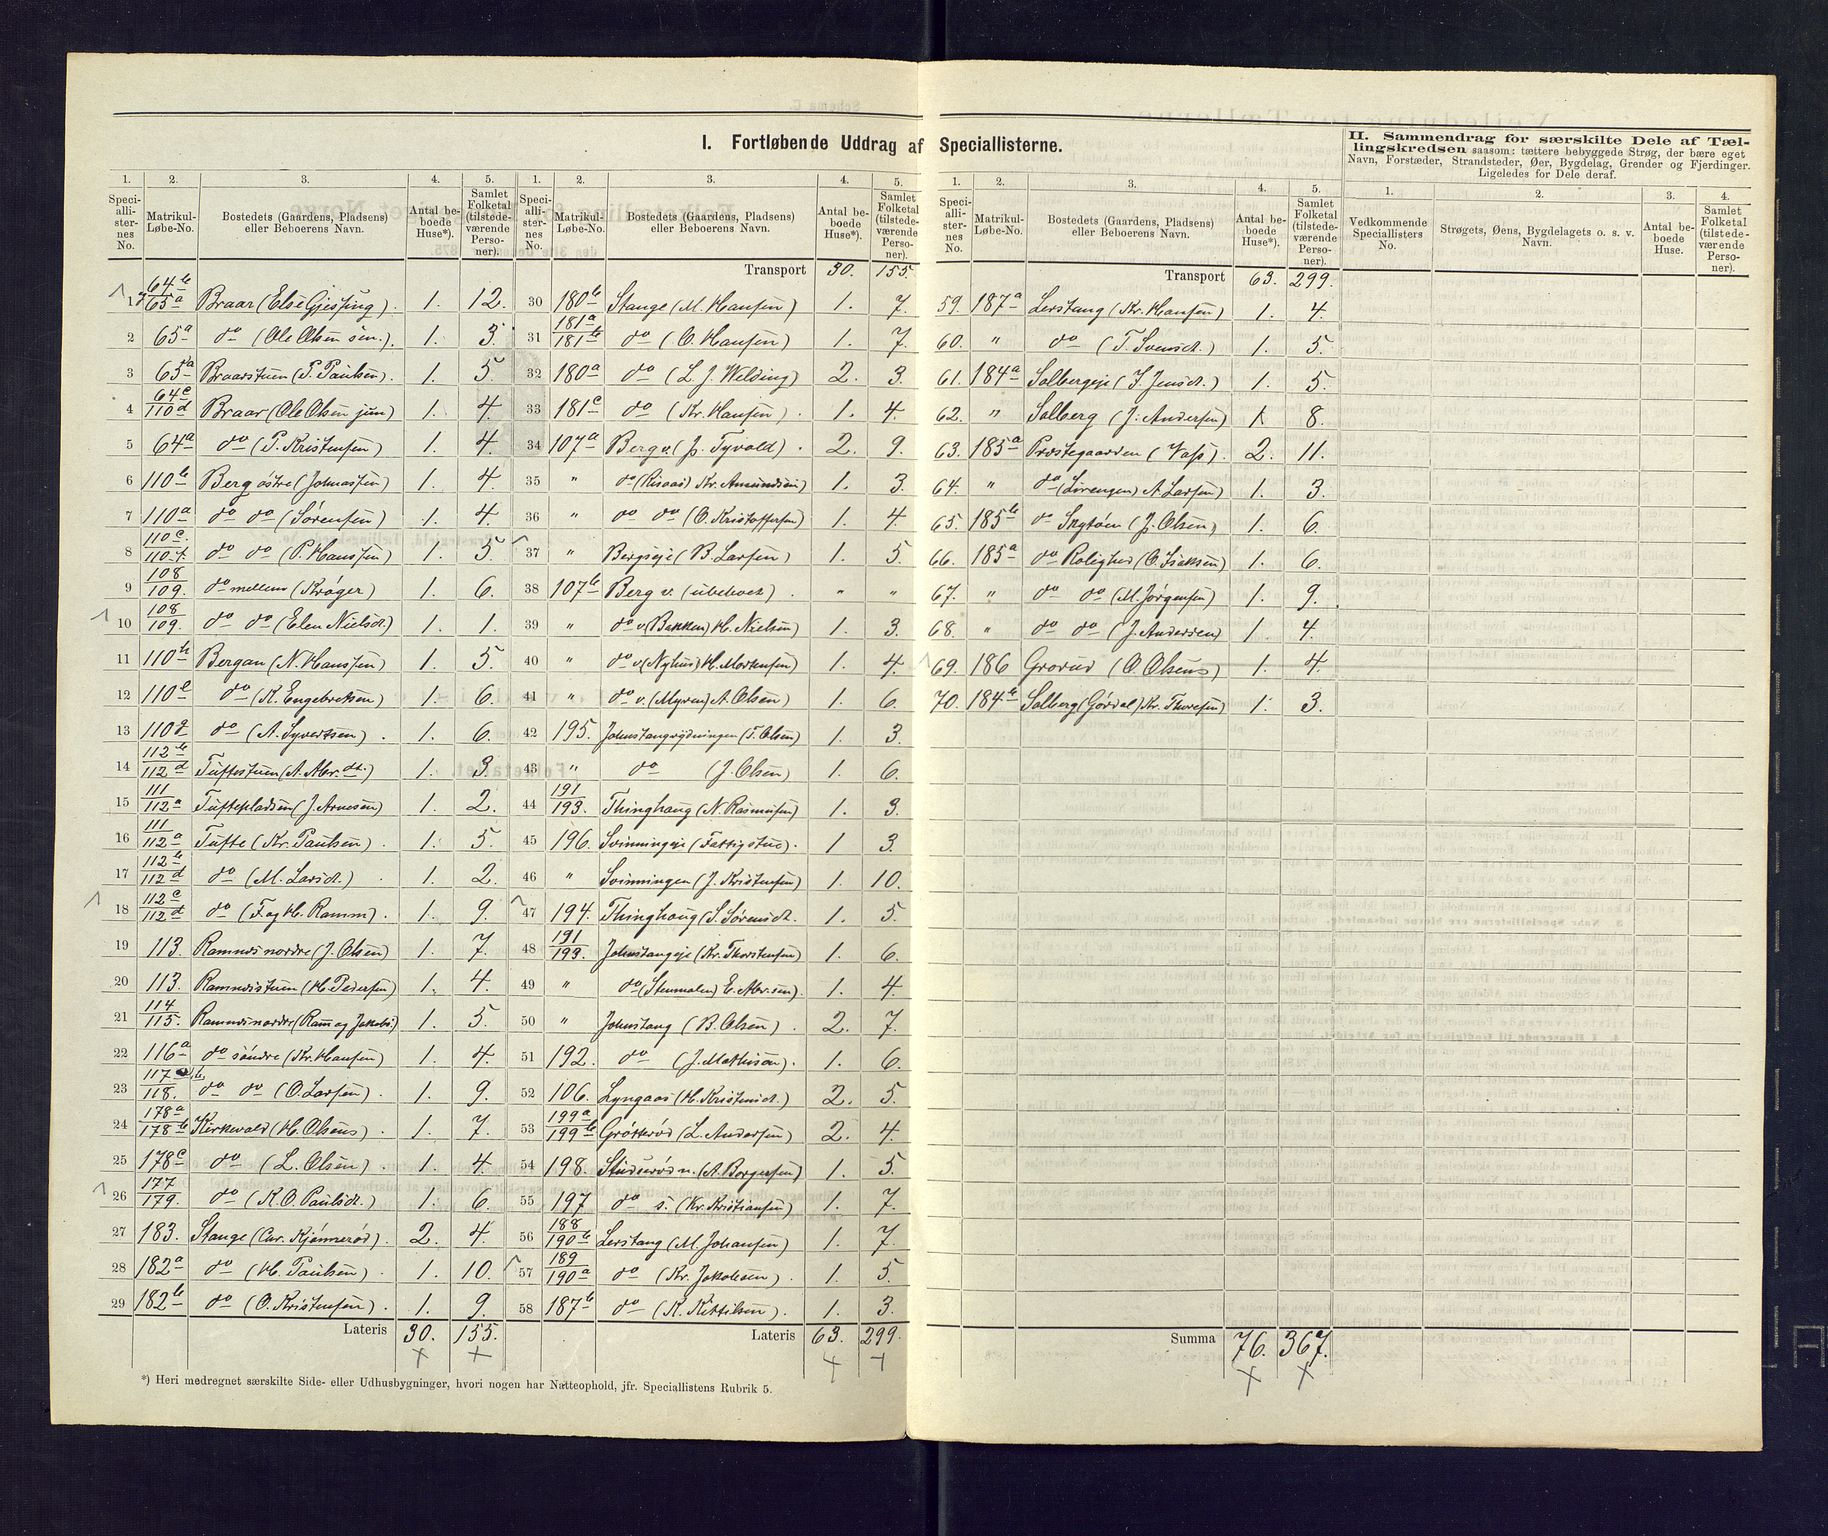 I. Fortløbende Uddrag af Speciallisterne.
II. Sammendrag for særskilte Dele af Tællingskredsen saasom: tættere bebyggede Strøg, der bære eget
Navn, Forstæder, Strandsteder, Øer, Bygdelag, Grender og Fjerdinger.
Ligeledes for Dele deraf.
1. 2. 3. 4. 5.
Speciallisternes No. Matrikul-Løbe-No. Bostedets (Gaardens, Pladsens) eller Beboerens Navn. Antal beboede Huse*). Samlet Folketal (tilstedeværende Personer).
1 64b/65a Braar (Else Gjessing) 1. 12.
2 65a do (Ole Olsen sen.) 1. 3.
3 65a Braarstuen (P. Paulsen) 1. 5.
4 64c/110d Braar (Ole Olsen jun) 1. 4.
5 64a do (P. Kristensen) 1. 4.
6 110b Berg østre (Johnassen) 1. 4.
7 110a do do (Sørensen) 1. 4.
8 110c/110f do do (P. Hanssen) 1. 5
9 108/109. do mellem (Krøger) 1. 6.
10 108/109. do do (Elen Nielsdt.) 1. 1.
11 110h Bergan (N. Hanssen) 1. 5.
12 110e do (K. Engebretsen) 1. 6.
13 110g do (A. Syvertsen) 1. 6.
14 112b/112d Tuftestuen (A. Abr. dt.) 1. 3.
15 111/112a Tuftepladsen (J. Arnesen) 1. 2.
16 111/112a Tufte (Kr. Paulsen) 1. 5.
17 112b/112d do (M. Larsdt.) 1. 2.
18 112c/112d do (F. og H. Ramm) 1. 9.
19 113. Ramnds nordre (J. Olsen) 1. 7.
20 113. Ramndsstuen (H. Pedersen) 1. 4.
21 114/115. Ramnds nordre (Ram og Jakobs.) 1. 5.
22 116a do søndre (Kr. Hansen) 1. 4.
23 117/118. do do (O. Larsen) 1. 9.
24 178a/178b Kirkevold (H. Olsens) 1. 7.
25 178c do (L. Olsen) 1. 4.
26 177/179. do (K. O. Paulsdt.) 1. 6.
27 183. Stange (Chr. Kjønnerød) 2. 4.
28 182a do (H. Paulsen) 1. 10.
29 182b do (O. Kristensen) 1. 9.
Lateris 30. 155.
1. 2. 3. 4. 5.
Speciallisternes No. Matrikul-Løbe-No. Bostedets (Gaardens, Pladsens) eller Beboerens Navn. Antal beboede Huse*). Samlet Folketal (tilstedeværende Personer).
Transport 30. 155.
30 180b Stange (M. Hansen) 1. 7.
31 181a/181b do (O. Hansen) 1. 7.
32 180a do (L. J. Welding) 2. 3.
33 181c do (Kr. Hansen) 1. 4.
34 107a Berg v. (J. Tyvold) 2. 9.
35 " do (Risaas) Kr. Amundsen) 1. 3.
36 " do do (O. Kristoffersen) 1. 4.
37 " Bergseje (B. Larsen) 1. 5.
38 107b Berg v. (ubeboet) " "
39 " do v (Bakken) H. Nielsen) 1. 3.
40 " do v (Nyhus) H. Mortensen) 1. 4.
41 " do v. (Myren) A. Olsen) 1. 6.
42 195. Johnstangrydningen (T. Olsen) 1. 3.
43 " do (J. Olsen) 1. 6.
44 191/193. Thinghaug (N. Rasmusen) 1. 3.
45 196. Svinningeje (Fattigstue) 1 3.
46 " Svinningen (J. Kristensen) 1. 10.
47 194. Thinghaug (S. Sørensdt. 1. 5.
48 191/193. Johnstangeje (Kr. Thorstensen) 1. 6.
49 " do (Stenmalen) E. Abr. sen) 1. 4.
50 " Johnstang (B. Olsen) 2. 7.
51 192. do (J. Mathisen) 1. 6.
52 106. Lyngaas (H. Kristensdt.) 2. 5.
53 199a/199b Grøtterød (L. Andersen) 2. 4.
54 198. Stuserød n. (A. Borgersen) 1. 5.
55 197 do s. (Kr. Kristiansen) 1. 7.
56 188/190b Lerstang (M. Johansen) 1. 7.
57 189/190a do (Kr. Jakobsen) 1. 5.
58 187b do (K. Kittilsen) 1. 3.
Lateris 63. 299.
*) Heri medregnet særskilte Side- eller Udhusbygninger, hvori nogen har Natteophold, jfr. Speciallistens Rubrik 5.
1. 2. 3. 4. 5.
Speciallisternes No. Matrikul-Løbe-No. Bostedets (Gaardens, Pladsens) eller Beboerens Navn. Antal beboede Huse*). Samlet Folketal (tilstedeværende Personer).
Transport 63. 299.
59. 187a Lerstang (Kr. Hansen) 1. 4.
60. " do (T. Svensdt.) 1. 5.
61. 184a Solbergeje (I. Jensdt.) 1. 5.
62. " Solberg (J. Andersen) 1 8.
63. 185a Præstegaarden (Vass) 2. 11.
64. " do (Lørengen) A. Larsen) 1. 3.
65. 185b do Skytøen (J. Olsen) 1. 6.
66. 185a do Rolighed (O. Isaksen) 1. 6.
67. " do do (M. Jørgensen) 1. 9.
68. " do do (J. Andersen) 1. 4.
69. 186 Grorud (O. Olsens) 1. 4.
70. 184b Solberg (Gørdal) Kr. Thoresen) 1. 3.
Summa 76. 367.
1. 2. 3. 4.
Vedkommende Speciallisters No. Strøgets, Øens, Bygdelagets o. s. v. Navn. Antal beboede Huse. Samlet Folketal (tilstedeværende Personer).